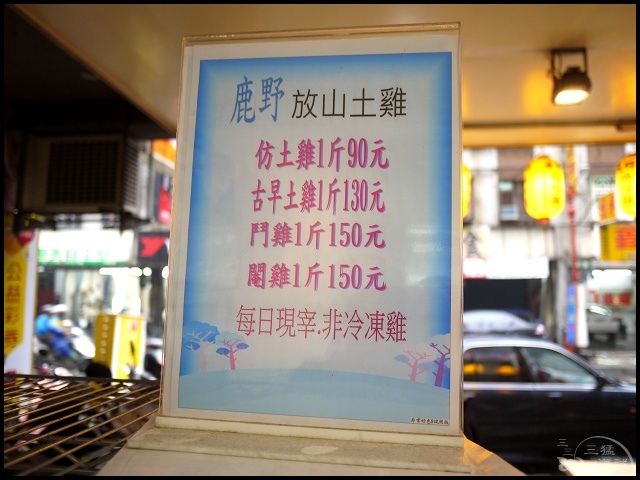 鹿野 放山土雞
仿土雞1斤90元
古早土雞1斤130元
鬥雞1斤150元
閹雞1斤150元
每日現宰.非冷凍雞
三猛